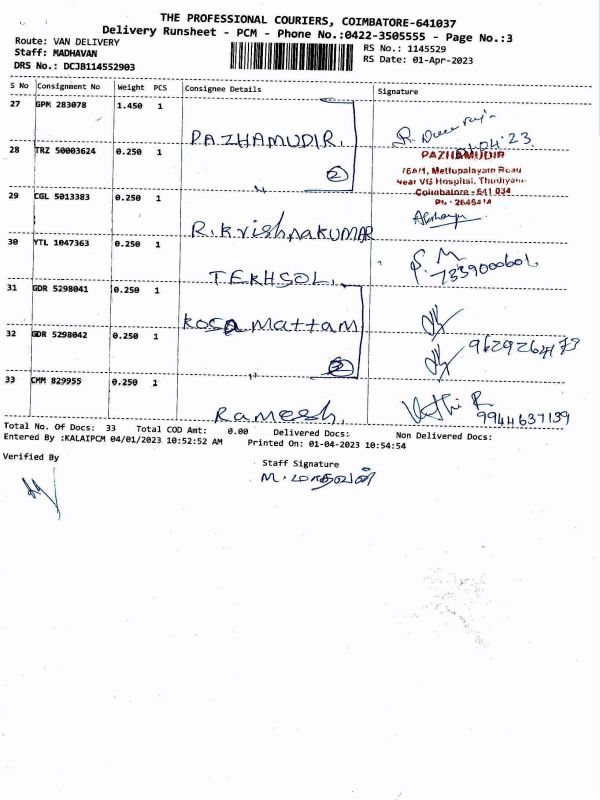 THE PROFESSIONAL COURIERS, COIMBATORE-641037
Delivery Runsheet - PCM - Phone No.:0422-3505555 - Page No.:3
Route: VAN DELIVERY
Staff: MADHAVAN
DRS No.: DCJB114552903
RS No.: 1145529
RS Date: 01-Apr-2023
S No Consignment No Weight PCS Consignee Details Signature
27 GPM 283078 1.450 1
PAZHAMUDIR.
28 TRZ 50003624 0.250 1
2
PAZHAMUDIR
Coimbatore - 641 034
29 CGL 5013383 0.250 1
R.KrishnaKUMAR
30 YTL 1047363 0.250 1
TEKHSOL.
7339000601
31 GDR 5298041 0.250 1
Kosamattam
32 GDR 5298042 0.250 1
2
9629264173
33 CMM 829955 0.250 1
Ramesh.
9944637139
Total No. Of Docs: 33 Total COD Amt: 0.00 Delivered Docs: Non Delivered Docs:
Entered By :KALAIPCM 04/01/2023 10:52:52 AM Printed On: 01-04-2023 10:54:54
Verified By
Staff Signature
M. மாதவன்